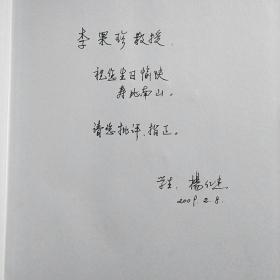 李果珍教授
祝您生日愉快
寿比南山。
请您批评、指正。
学生 杨仁杰
2009.2.8.